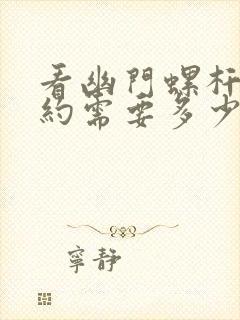 看幽門螺杆
約需要多少
寧靜